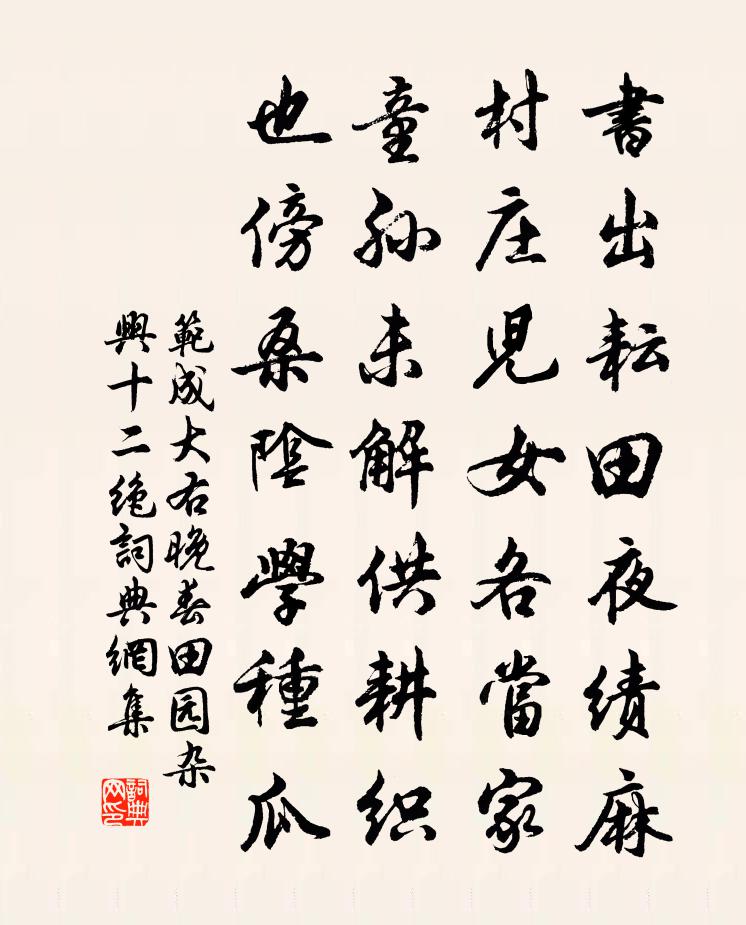 書出耘田夜績麻
村庄兒女各當家
童孫未解供耕织
也傍桑陰學種瓜
範成大右晚春田园杂
興十二絶詞典網集
詞典
网印